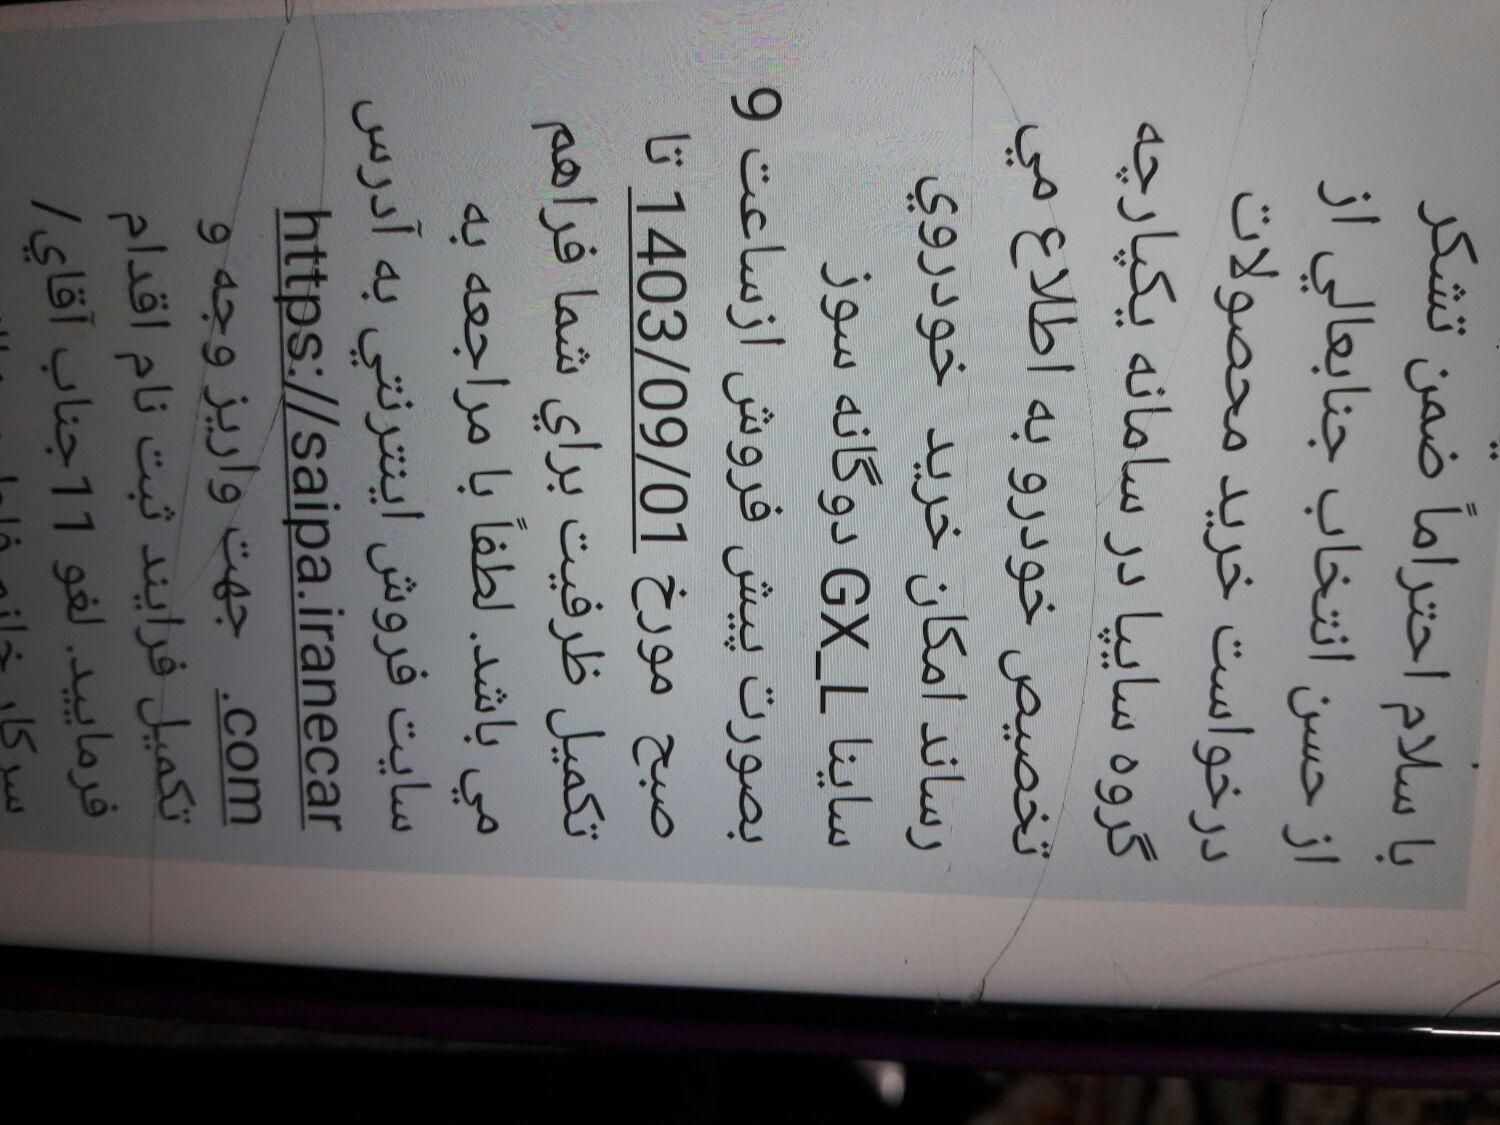 با سلام احتراماً ضمن تشکر
از حسن انتخاب جنابعالي از
درخواست خريد محصولات
گروه سايپا در سامانه يکپارچه
تخصيص خودرو به اطلاع مي
رساند امکان خريد خودروي
ساينا GX_L دوگانه سوز
بصورت پيش فروش ازساعت 9
صبح مورخ 1403/09/01 تا
تکميل ظرفيت براي شما فراهم
مي باشد. لطفاً با مراجعه به
سايت فروش اينترنتي به آدرس
https://saipa.iranecar
.com جهت واريز وجه و
تکميل فرايند ثبت نام اقدام
فرماييد. لغو 11جناب آقاي/
سرکار خانم